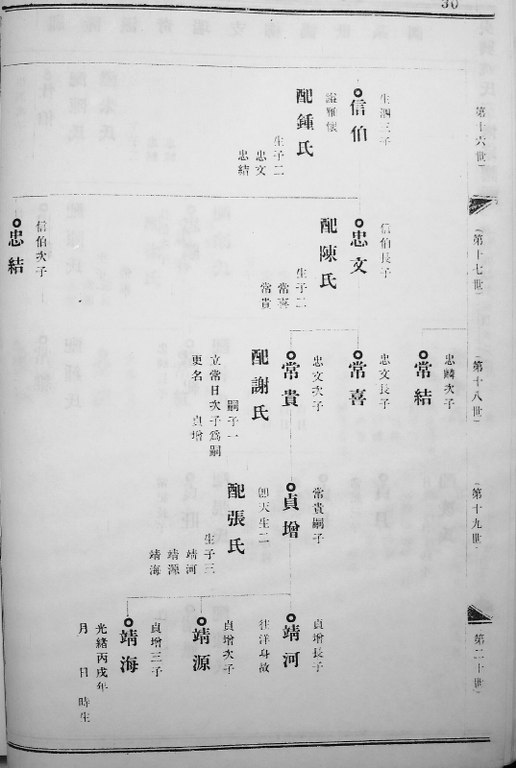 30
第十六世
生泗三子
信伯
諡雅懷
配鍾氏
生子二
忠文
忠結
(第十七世)
信伯長子
忠文
配陳氏
生子二
常喜
常貴
信伯次子
忠結
(第十八世)
忠麟次子
常結
忠文長子
常喜
忠文次子
常貴
配謝氏
嗣子一
立常日次子爲嗣
更名 貞增
(第十九世)
常貴嗣子
貞增
卽天生二
配張氏
生子三
靖河
靖源
靖海
(第二十世)
貞增長子
靖河
往洋身故
貞增次子
靖源
貞增三子
靖海
光緒丙戌年
月 日 時生